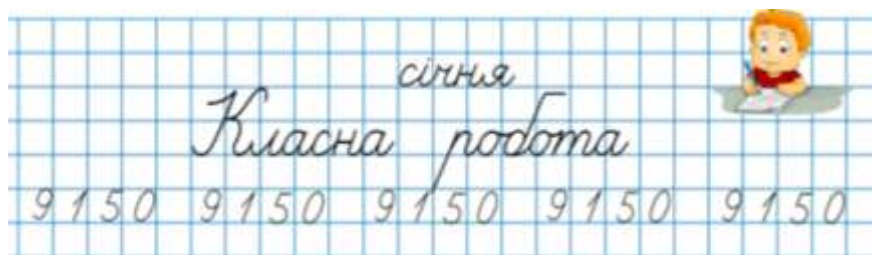 січня
Класна робота
9150 9150 9150 9150 9150